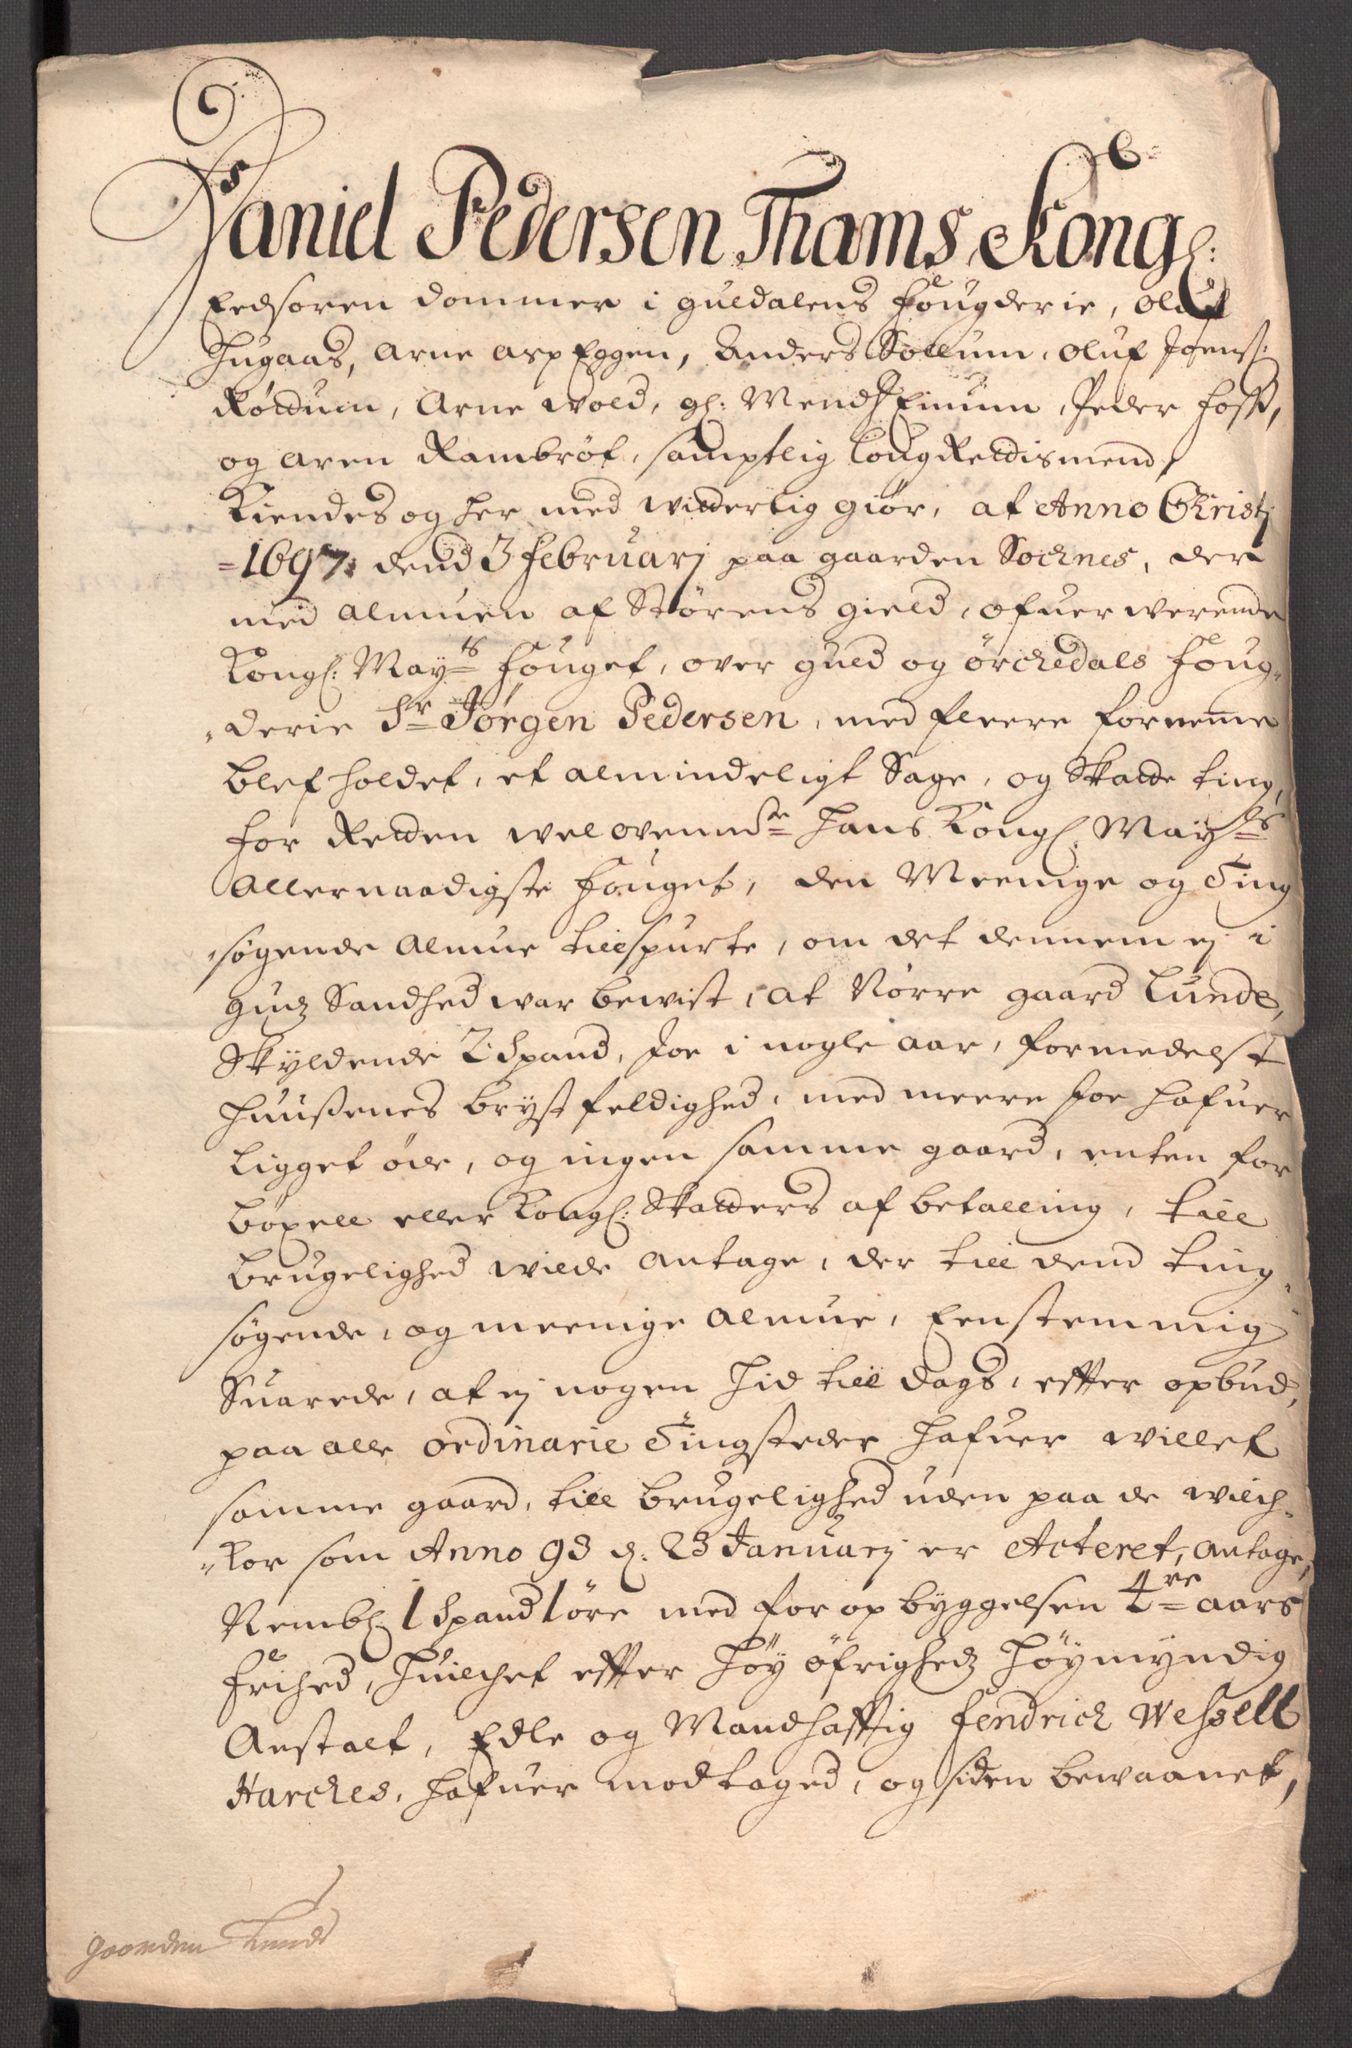 Daniel Pedersen Thams, Kongl:
Eedsoren dommer i guldalens fougderie, Oluf
Hugaas, Arne aspEggen, Anders Sollum, Oluf Joens:
Røttum, Arne wold, gl: MendsEinum, Peder foss,
og Aren Rambrøt, samptlig lougRettismend,
Kiendes og her med witterlig giør, at Anno Christj
=1697, dend 3 februarj paa gaarden Sochnes, der
med almuen af Størens gield, ofuerwerende
Kongl: Mayts fouget, over guld og ørckedals foug-
derie Sr Jørgen Pedersen, med fleere fornemme
blef holdet, et almindeligt Sage, og Skatte ting,
for Retten welovenmte Hans Kongl: Mayts
Allernaadigste fouget, den Meenige og Ting
søgende almue tilspurte, om det dennem ej i
gudz Sandhed war bewist, at Nørre gaard Lunde,
Skyldende 2 Spand, Joe i nogle aar, formedelst
huusenes brystfeldighed, med meere foe hafuer
ligget øde, og ingen samme gaard, enten for
böxell eller Kongl: Skatters afbetalling, till
brugelighed wilde antage, der till dend ting-
søgende, og meenige almue, Eenstemmig
Suarede, at ej nogen hid till dags, effter opbud,
paa alle ordinarie Tingsteder hafuer willet
samme gaard, till brugelighed uden paa de wilch-
kor som Anno 93 d: 23 Januarj er Acteret, antage,
Nembl: 1 Spand 1 øre med for opbyggelsen 4re aars
frihed, huilchet effter høy öfrighedz høymyndig
Anstalt, Edle og Mandhafftig fendrich Wessell
Harches, hafuer modtaged, og siden bewaanet,
gaarden Lunde